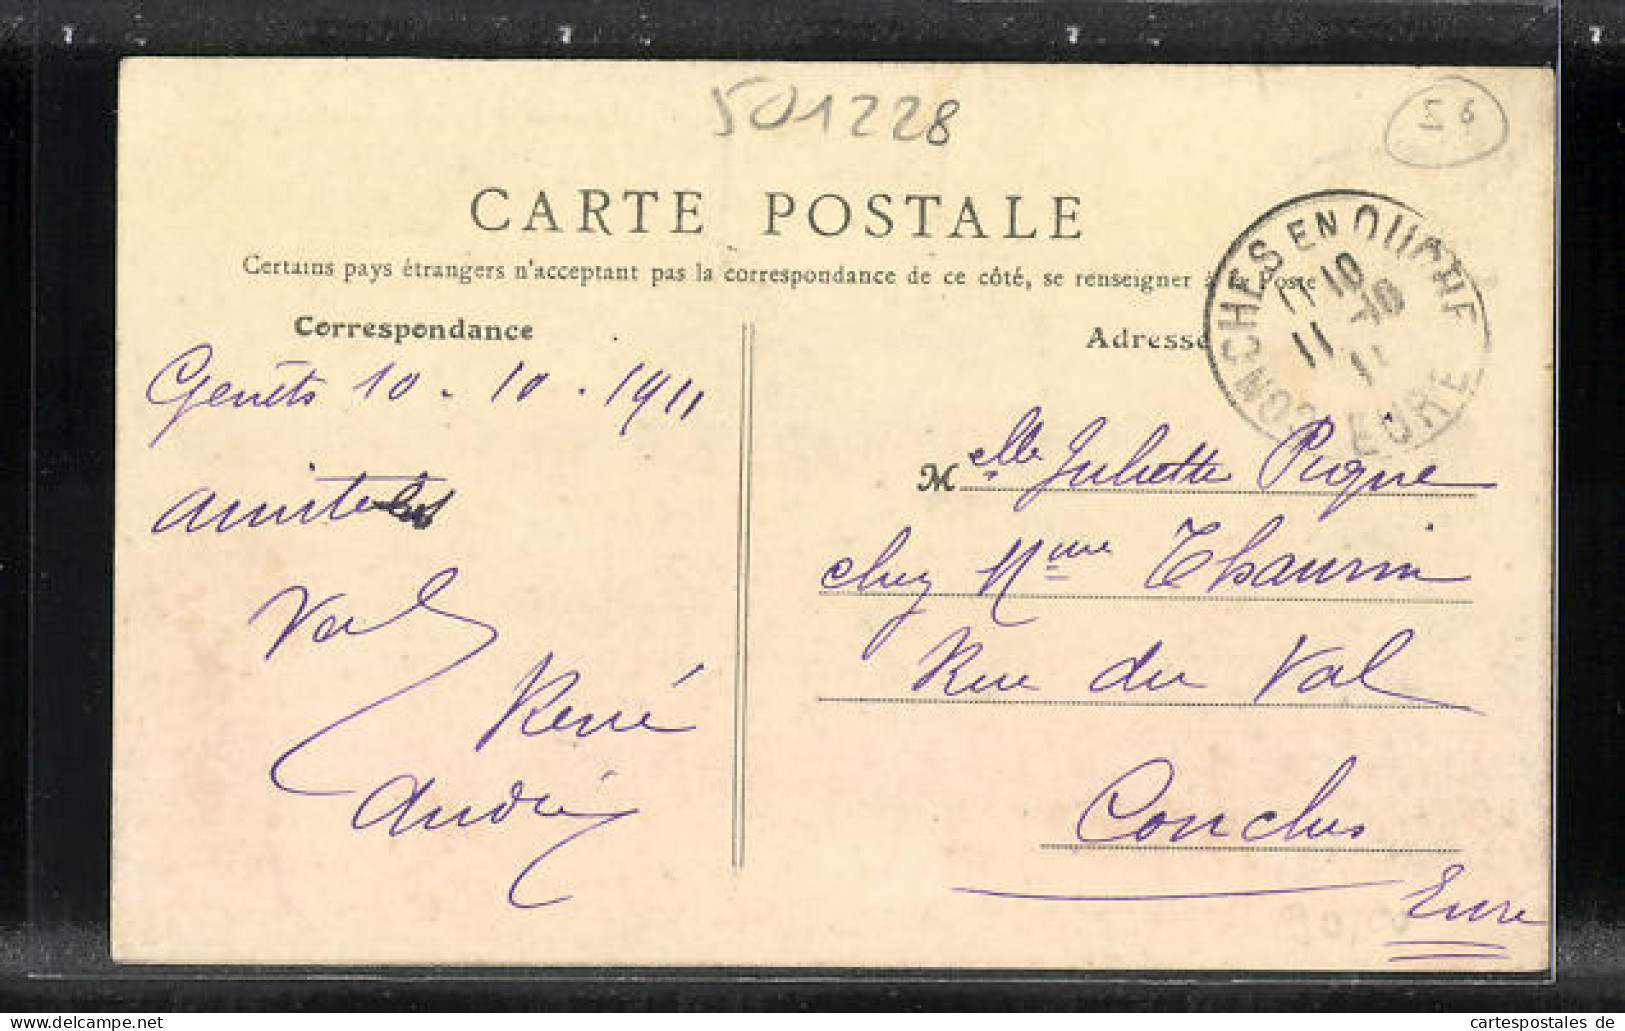 501228
CARTE POSTALE
Certains pays étrangers n'acceptant pas la correspondance de ce côté, se renseigner à la Poste
CONCHES EN OUCHE
11 10
10
11
EURE
Correspondance
Adresse
Genêts 10 - 10 - 1911
Val
René
André
Melle Juliette
chez Mme Thaurin
Rue du Val
Conches
Eure
Delcampe.net
cartespostales de